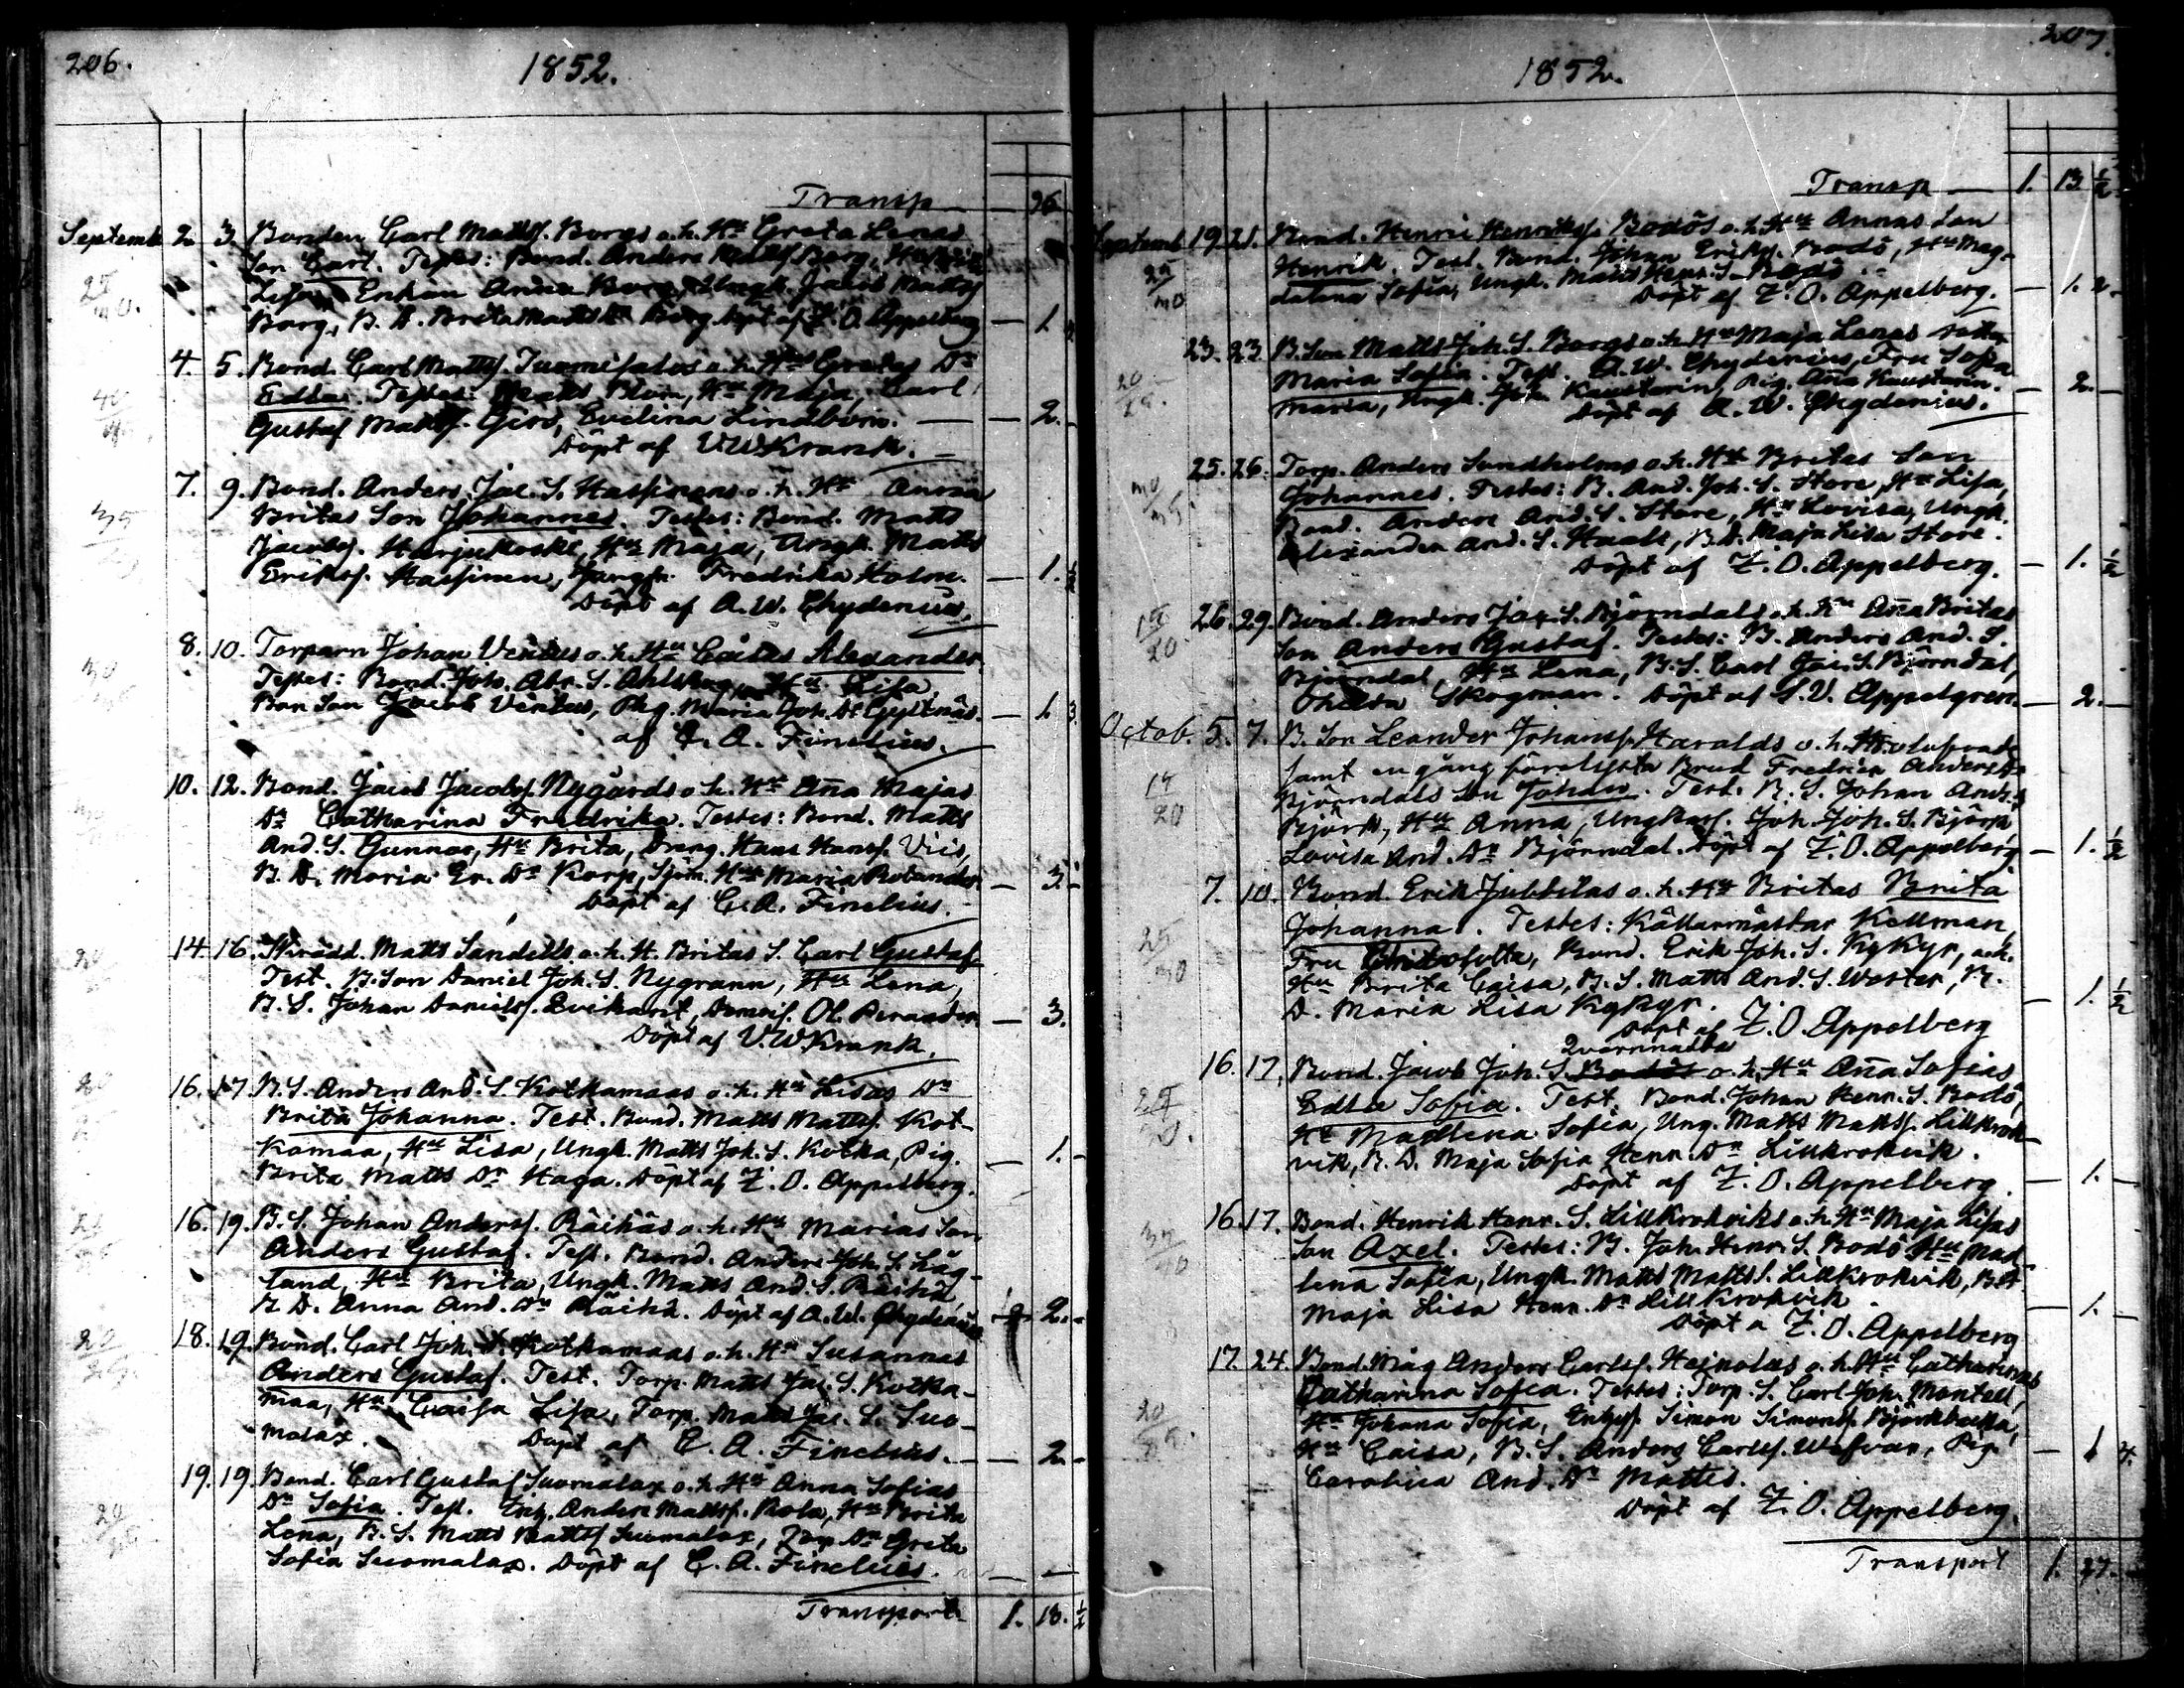 206.
1852.
Transp — 96
Septemb. 2. 3. Bonden Carl Mattss. Borgs o. h. Hu Greta Lenas
Son Carl. Testes: Bond. Anders Mattss. Borg, Hu Brita
Lisa, Enkan Anna Borg, Ungk. Jacob Mattss
Borg, B. D. Brita Matts Dr Borg. Döpt af Z. O. Appelberg — 1.
4. 5. Bond. Carl Mattss. Tuomisalos o. h. Hus Gretas Dr
Edla. Testes: Matts Blom, Hu Maja, Carl
Gustaf Mattss. Gerö, Evelina Lindbom. — 2. –
Döpt af V. W. Krank.
7. 9. Bond. Anders Jac. S. Hassinens o. h. Hu Anna
Britas Son Johannes. Testes: Bond. Matts
Jacobss. Harjukoski, Hu Maja, Ungk. Matts
Erikss. Hassinen, Jungfr. Fredrika Holm. — 1. ½
Döpt af A. W. Chydenius.
8. 10. Torparn Johan Ventus o. h. Hu Caisas Alexander.
Testes: Bond. Joh. Abr. S. Ahlskog, Hu Lisa,
Bon. Son Jacob Ventus, Pig. Maria Joh. Dr Gyltnäs. — 1. 3.
af C. A. Finelius.
10. 12. Bond. Jacob Jacobss. Nygårds o. h. Hu Aña Majas
Dr Catharina Fredrika. Testes: Bond. Matts
And. S. Gunnar, Hu Brita, Dreng. Hans Hanss. Viis,
B. D. Maria Er. Dr Korp, Sjöm. Hu Maria Bolander — 3. –
Döpt af C. A. Finelius.
14. 16. Skrädd. Matts Sandells o. h. H. Britas S. Carl Gustaf
Test. B. Son Daniel Joh. S. Nygrann, Hu Lena,
B. S. Johan Danielss. Evikarit, Demois. Ol. Perander — 3.
Döpt af V. W. Krank.
16. 17. B. S. Anders And. S. Kotkamaas o. h. Hu Lisas Dr
Brita Johanna. Test. Bond. Matts Mattss. Kot-
kamaa, Hu Lisa, Ungk. Matts Joh. S. Kotka, Pig.
Brita Matts Dr Haga. Döpt af Z. O. Appelberg. — 1. –
16. 19. B. S. Johan Anderss. Räihäs o. h. Hu Marias Son
Anders Gustaf. Test. Bond. Anders Joh. S. Låg-
land, Hu Brita, Ungk. Matts And. S. Räihä,
B. D. Anna And. Dr Räihä. Döpt af A. W. Chydenius 2. –
18. 19. Bond. Carl Joh. S. Kotkamaas o. h. Hu Susannas
Anders Gustaf. Test. Torp. Matts Jac. S. Kotka-
maa, Hu Caisa Lisa, Torp. Matts Jac. S. Suo-
malax. Döpt af C. A. Finelius. — 2. –
19. 19. Bond. Carl Gustaf Suomalax o. h. Hu Anna Sofias
Dr Sofia. Test. Anders Mattss. Hu Brita
Lena, B. S. Matts Mattss Suomalax, Torp. Dr Greta
Sofia Suomalax. Döpt af C. A. Finelius. — —
Transport 1. 13. ½
207.
1852.
Transp — 1. 13 ½
Septemb. 19. 21. Bond. Henric Henrikss. Bodös o. h. Hu Annas Son
Henrik. Test. Bond. Johan Erikss. Bodö, Hu Mag-
dalena Sofia, Ungk. Matts Henr. S. Bodö.
Döpt af Z. O. Appelberg. — 1. 2.
23. 23. B. Son Matts Joh. S. Borgs o. h. Hu Maja Lenas
Maria Sofia. Test. A. W. Chydenius, Fru Sofia
Maria, Ungk. Joh. Kaustarin, Pig. Aña Kaustarin. — 2. –
Döpt af A. W. Chydenius.
25. 26. Torp. Anders Sundholms o. h. Hu Britas Son
Johannes. Testes: B. And. Joh. S. Store, Hu Lisa,
Bond. Anders And. S. Store, Hu Lovisa, Ungk.
Alexander And. S. Haals, B. D. Maja Lisa Store.
Döpt af Z. O. Appelberg. — 1. ½
26. 29. Bond. Anders Jac. S. Björndals o. h. Hu Aña Britas
Son Anders Gustaf. Testes: B. Anders And. S.
Björndal, Hu Lena, B. S. Carl Jac. S. Björndal,
Thilda Skogman. Döpt af S. V. Appelgren. — 2. –
Octob. 5. 7. B. Son Leander Johanss. Haralds o. h. Trolofvade
samt en gång förelysta Brud Fredrica Anders Dr
Björndals Son Johan. Test. B. S. Johan And. S.
Björk, Hu Anna, Ungkarl. Joh. Joh. S. Björk
Lovisa And. Dr Björndal. Döpt af Z. O. Appelberg — 1. ½
7. 10. Bond. Erik Jubbilas o. h. Hu Britas Brita
Johanna. Testes: Källarmästar Kellman,
Fru Bond. Erik Joh. S. Kykyr, och
Hu Brita Caisa, B. S. Matts And. S. Wester, B.
D. Maria Lisa Kykyr. — 1. ½
Döpt af Z. O. Appelberg
Qvarnnabba
16. 17. Bond. Jacob Joh. S. Bodös o. h. Hu Aña Sofias
Edla Sofia. Test. Bond. Johan Henr. S. Bodö,
Hu Madlena Sofia, Ung. Matts Mattss. Lillkrok-
vik, B. D. Maja Sofia Henr. Dr Lillkrokvik.
Döpt af Z. O. Appelberg. — 1. –
16. 17. Bond. Henrik Henr. S. Lillkrokviks o. h. Hu Maja Lisas
Son Axel. Testes: B. Joh. Henr. S. Bodö Hu Mad-
lena Sofia, Ungk. Matts Matts S. Lillkrokvik, B. D.
Maja Lisa Henr. Dr Lillkrokvik. — 1. –
Döpt a Z. O. Appelberg
17. 24. Bond. Måg Anders Carlss. Heinolas o. h. Hu Catharinas
Catharina Sofia. Testes: Torp. S. Carl Joh. Montell,
Hu Johana Sofia, Simon Simonss. Björkbacka,
Hu Caisa, B. S. Anders Carlss. Pig. — 1 4.
Carolina And. Dr Mattis.
Döpt af Z. O. Appelberg.
Transport 1. 27. –